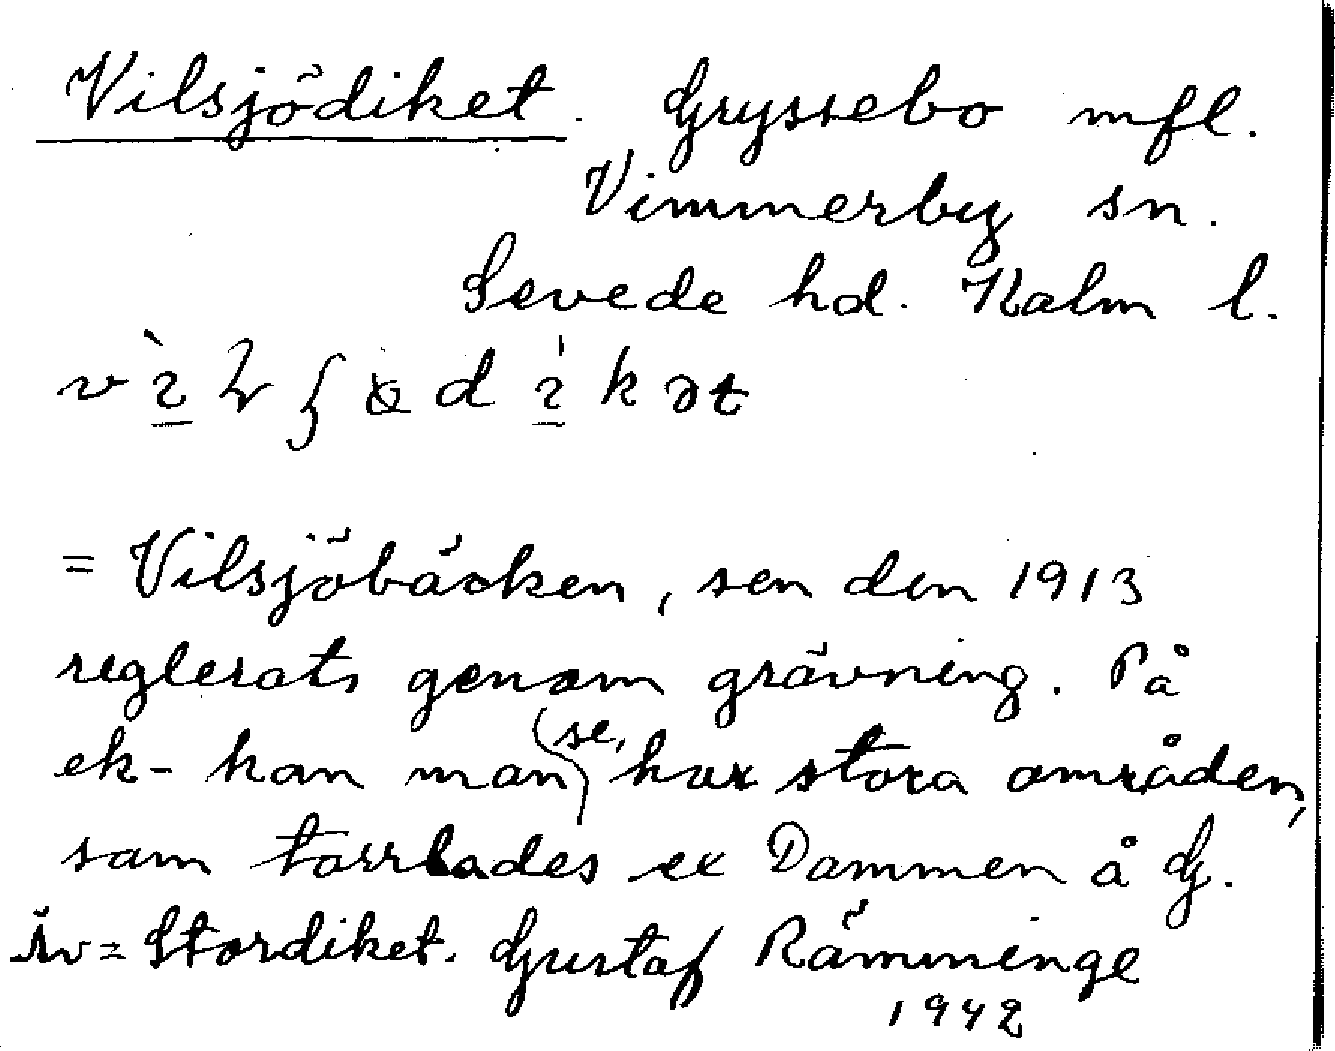 Vilsjödiket. Gryssebo mfl.
Vimmerby sn.
Sevede hd. Kalm l.
= Vilsjöbäcken, sen den 1913
reglerats genom grävning. På
ek- kan man se, hur stora områden,
som torrlades ex Dammen å G.
Äv = Stordiket. Gustaf Rämminge
1942